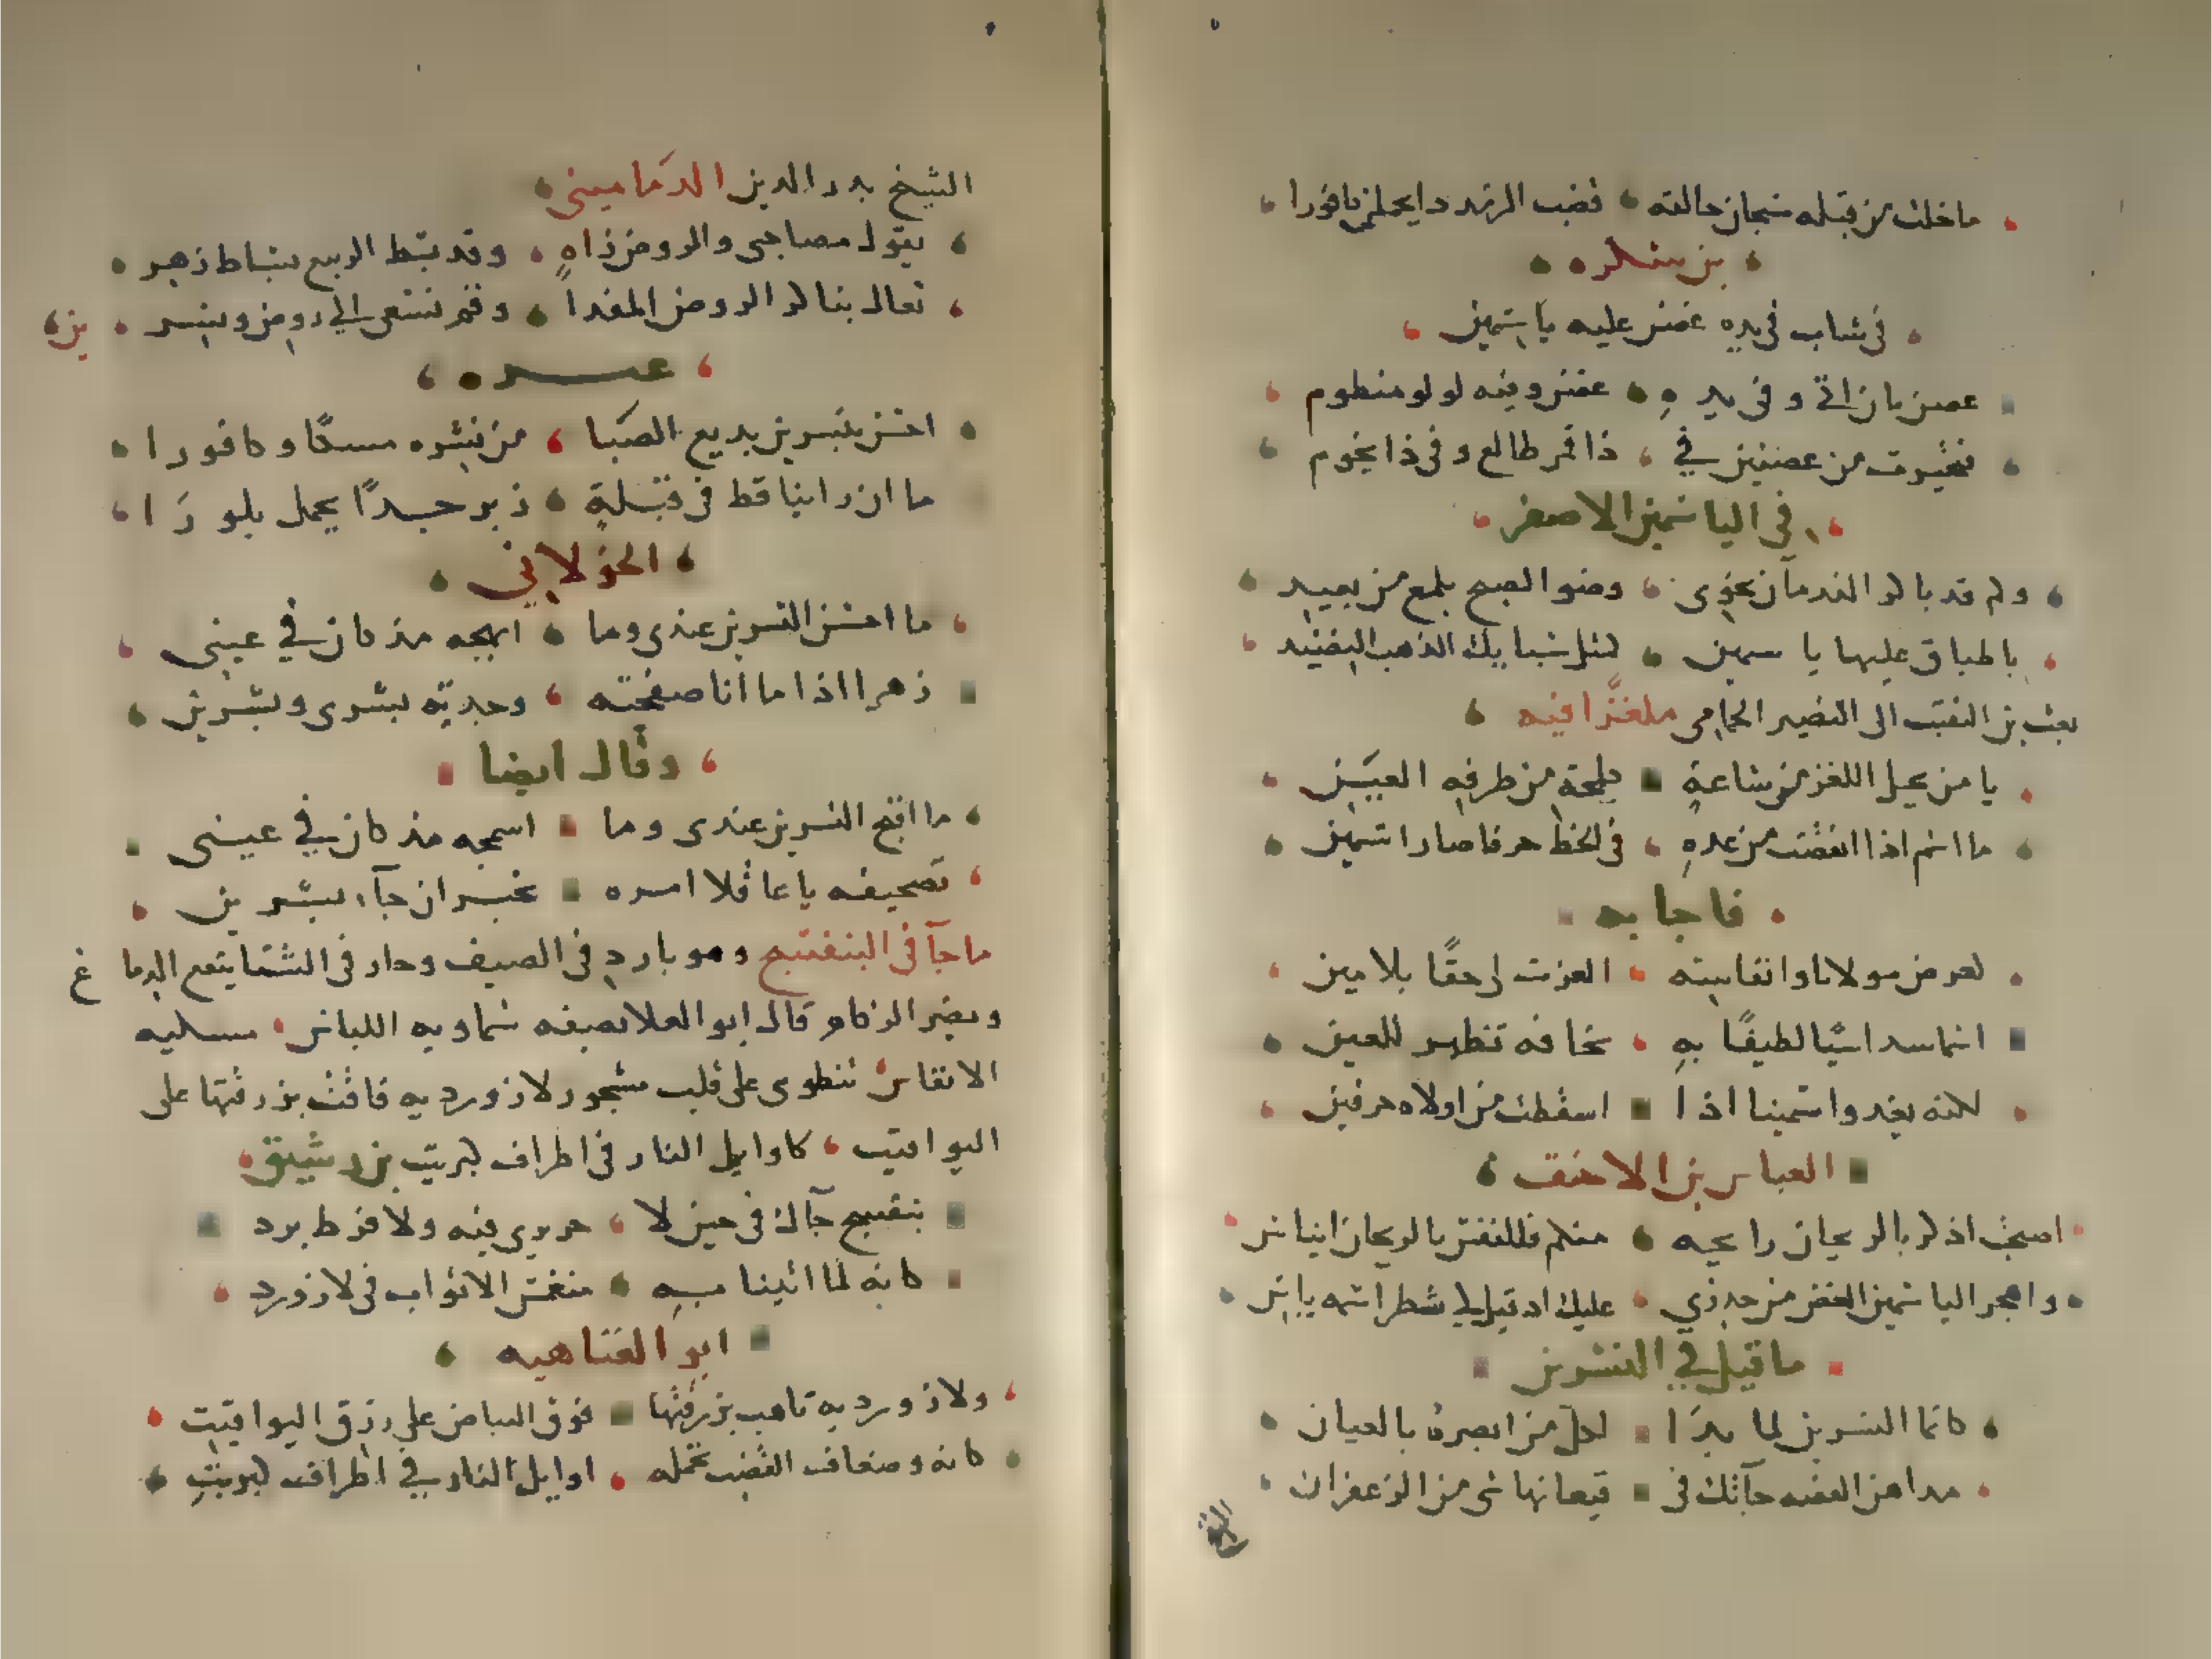 ما خلت من قبله سبحان خالقه قضب الزمرد دا يحملن كافورا
بن سكره
في شاب في يده غصن عليه ياسمين
غصن بان اتى وفي يده غصن وفيه لولو منظوم
فتحيرت من غصنين في ذا قمر طالع وفي ذا نجوم
في الياسمين الاصفر
ولم قد باكر الندمان نحوى وضو الصبح يلمع من بعيد
باطباق عليها ياسمين لمثل شبابيك الذهب النضيد
بعث بن النقيب الى النصير الحمامي ملغزا فيه
يا من يحيل اللغز من ساعة بلمحة من طرفه العين
ما اسم اذا انقضت من عده في الخط حرفا صار اسمين
فاجابه
لعرض مولانا وانفاسه العزت لي حقا بلا مين
انما سد اسيا لطيفا به نخافه تظهر للعين
لكنه يغدو اسمينا اذا اسقطت من اولاه حرفين
العباس بن الاحنف
اصبحت اذكر بالريحان رايحه منكم فللنفس بالريحان ايناس
واهجر الياسمين الغض من حذري عليك اذ قيل لي شطر اسمه ياس
ما قيل في النسرين
كانما النسرين لما بدا لكل من ابصره بالعيان
مداهن الفضه جآتك في قيعانها شي من الزعفران
الشيخ
الشيخ بدر الدين الدماميني
يقول مصاحبي والروض زاه وقد بسط الربيع بساط زهر
تعال بنا لر الروض المفدا وقم نسعى الى روض ونسر ين
غيره
احسن بنسرين بديع الصبا من نشره مسكا وكافورا
ما ان راينا قط في قبله زبرجدا يحمل بلورا
الخولاني
ما احسن النسرين عندي وما ابهجه مذ كان في عيني
زهرا اذا ما انا صحفته وجدته بشرى وبشرين
وقال ايضا
ما اقبح النسرين عندي وما اسمجه مذ كان في عيني
تصحيفه يا عاقلا امره نخبر ان جآ بشرين
ما جآ في البنفسج وهو بارد في الصيف وحار في الشتا ينفع الدماغ
ويضر الزكام قال ابو العلا يصفه سماويه اللباس مسكيه
الانفاس تنطوى على قلب مشجور لازورديه فاقت بزرقتها على
اليواقيت كاوايل النار في اطراف كبريت بن رشيق
بنفسج جآك في حين لا حر يرى فيه ولا فرط برد
كانه لما اتينا به منغمس الاثواب في لازورد
ابو العتاهيه
ولازورديه تاهت بزرقتها فوق البياض على زرق اليواقيت
كانه وضعاف القضب تحمله اوايل النار في اطراف كبريت